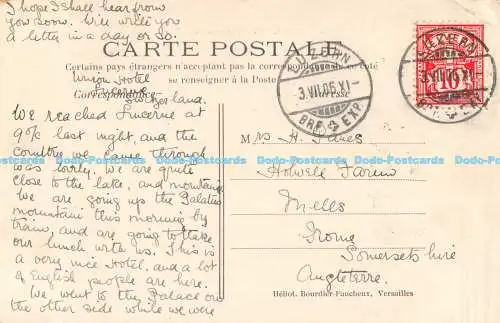 I hope I shall hear from
you soon. Will write you
a letter in a day or so.
CARTE POSTALE
Certains pays étrangers n'acceptent pas la correspondance de ce côté
se renseigner à la Poste.
Correspondance
Adresse
Union Hotel
Lucerne
Switzerland.
We reached Lucerne at
9 last night, and the
country we came through
was lovly. We are quite
close to the lake, and mountains
We are going up the Pilatus
mountain this morning by
train, and are going to take
our lunch with us. This is
a very nice Hotel, and a lot
of English people are here.
We went to the Palace on
the other side while we were
LUZERN
3.VII.06.XI-
BRF. EXP.
LUZERN
3.VII.06.XI-
BRF. EXP.
10
M rs H.
Holwell Farm
Mells
Frome
Somersetshire
Angleterre.
Héliot. Bourdier-Faucheux, Versailles
Dodo-Postcards Dodo-Postcards Dodo-Postcards Dodo-Postcards Dodo-Postcards